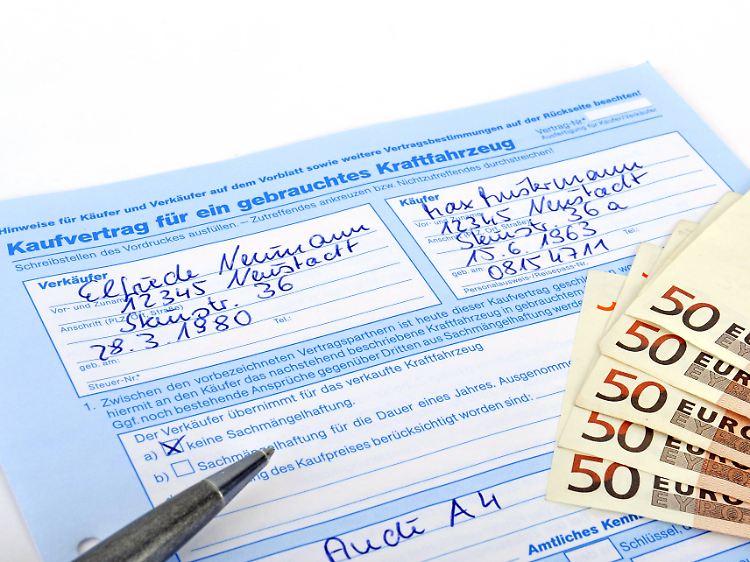 Hinweise für Käufer und Verkäufer auf dem Vorblatt sowie weitere Vertragsbestimmungen auf der Rückseite beachten!
Vertrag-Nr.
Ausfertigung für Käufer/Verkäufer
Kaufvertrag für ein gebrauchtes Kraftfahrzeug
Schreibstellen des Vordruckes ausfüllen – Zutreffendes ankreuzen bzw. Nichtzutreffendes durchstreichen!
Verkäufer
Elfriede Neumann
Vor- und Zuname
12345 Neustadt
Anschrift (PLZ, Ort, Straße)
Steinstr. 36
28.3.1980
geb. am:
Tel.:
Steuer-Nr.
Käufer
Max Mustermann
Vor- und Zuname
12345 Neustadt
Anschrift (PLZ, Ort, Straße)
Steinstr. 36a
15.6.1963
geb. am:
Tel.:
08154711
Personalausweis-/Reisepass-Nr.
1. Zwischen den vorbezeichneten Vertragspartnern ist heute dieser Kaufvertrag
hiermit an den Käufer das nachstehend beschriebene Kraftfahrzeug in gebrauchtem
Ggf. noch bestehende Ansprüche gegenüber Dritten aus Sachmängelhaftung werden
Der Verkäufer übernimmt für das verkaufte Kraftfahrzeug
a) X keine Sachmängelhaftung.
b) Sachmängelhaftung für die Dauer eines Jahres. Ausgenommen
des Kaufpreises berücksichtigt worden sind:
Audi A4
Amtliches
Schlüssel,
50 EURO
50 EURO
50 EURO
50 EURO
50 EURO